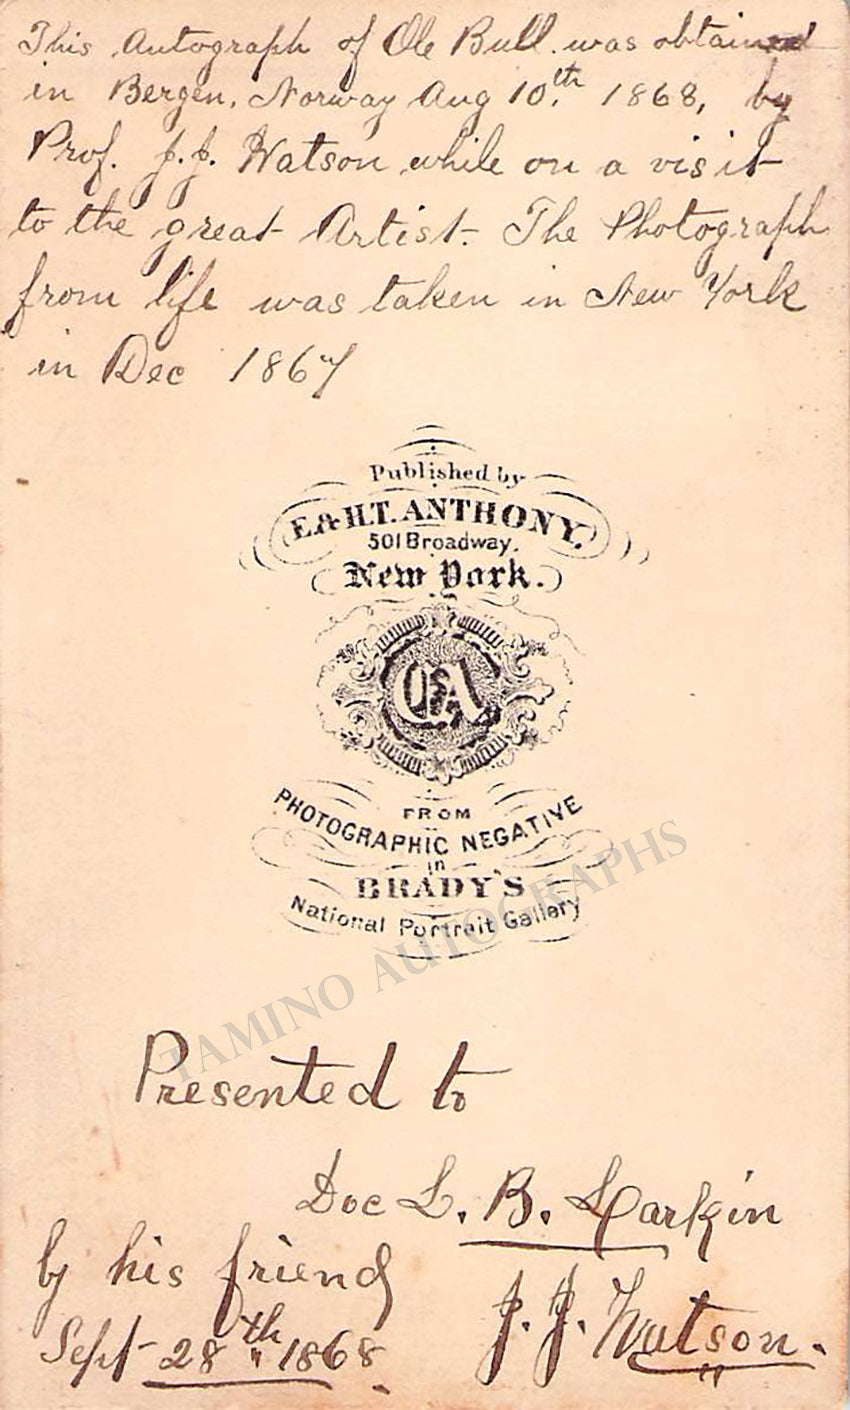 This Autograph of Ole Bull was obtained
in Bergen, Norway Aug 10.th 1868, by
Prof. J. J. Watson while on a visit
to the great Artist. The Photograph
from life was taken in New York
in Dec 1867
Published by
E & H.T. ANTHONY.
501 Broadway.
New York.
FROM
PHOTOGRAPHIC NEGATIVE
in
BRADY'S
National Portrait Gallery
TAMINO AUTOGRAPHS
Presented to
Doc L. B. Larkin
by his friend
J. J. Watson.
Sept 28th 1868.